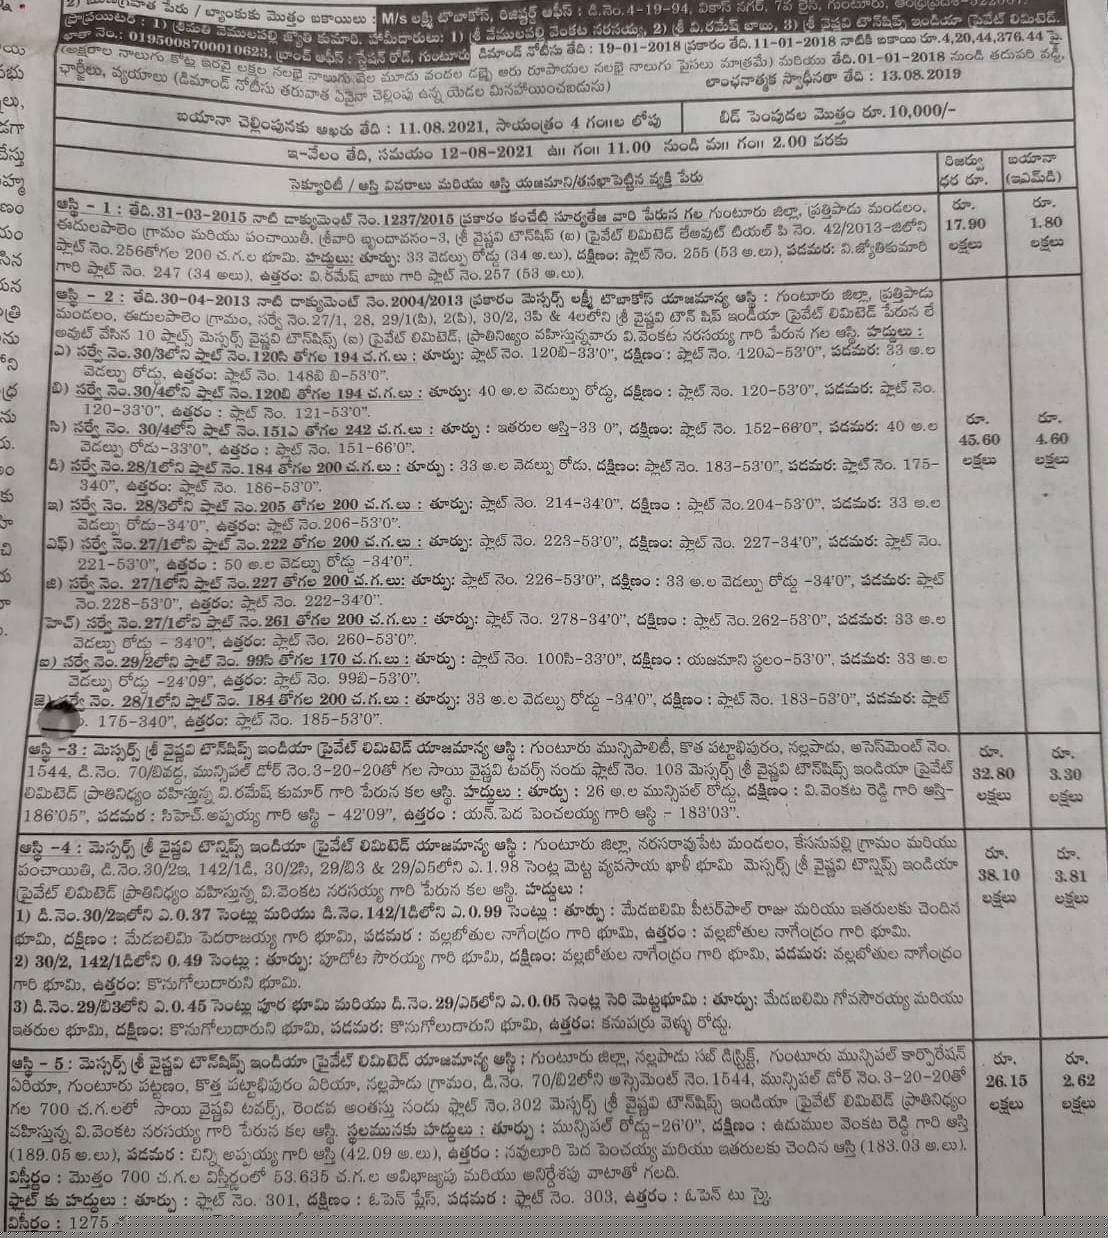 2) రుణగ్రహీత పేరు / బ్యాంకుకు మొత్తం బకాయిలు : M/s లక్ష్మీ టొబాకోస్, రిజిస్టర్డ్ ఆఫీస్ : డి.నెం.4-19-94, వికాస్ నగర్, 7వ లైన్, గుంటూరు,
(ప్రొప్రయిటర్ : 1) శ్రీమతి వేములపల్లి జ్యోతి కుమారి, హామీదారులు: 1) శ్రీ వేములపల్లి వెంకట నరసయ్య, 2) శ్రీ వి.రమేష్ బాబు, 3) శ్రీ వైష్ణవి టౌన్‌షిప్స్ ఇండియా ప్రైవేట్ లిమిటెడ్.
ఖాతా నెం.: 0195008700010623, బ్రాంచ్ ఆఫీస్ : స్టేషన్ రోడ్, గుంటూరు డిమాండ్ నోటీసు తేది : 19-01-2018 ప్రకారం తేది.11-01-2018 నాటికి బకాయి రూ.4,20,44,376.44 పై.
(అక్షరాల నాలుగు కోట్ల ఇరవై లక్షల నలభై నాలుగు వేల మూడు వందల డెబ్బై ఆరు రూపాయల నలభై నాలుగు పైసలు మాత్రమే) మరియు తేది.01-01-2018 నుండి తదుపరి వడ్డీ,
ఛార్జీలు, వ్యయాలు (డిమాండ్ నోటీసు తరువాత ఏవైనా చెల్లింపు ఉన్న యెడల మినహాయించబడును) లాంఛనాత్మక స్వాధీనతా తేది : 13.08.2019
బయానా చెల్లింపునకు ఆఖరు తేది : 11.08.2021, సాయంత్రం 4 గం॥ల లోపు బిడ్ పెంపుదల మొత్తం రూ.10,000/-
ఇ-వేలం తేది, సమయం 12-08-2021 ఉ॥ గం॥ 11.00 నుండి మ॥ గం॥ 2.00 వరకు
సెక్యూరిటీ / ఆస్తి వివరాలు మరియు ఆస్తి యజమాని/తనఖాపెట్టిన వ్యక్తి పేరు రిజర్వు ధర రూ. బయానా (ఇఎమ్‌డి)
ఆస్తి - 1 : తేది.31-03-2015 నాటి డాక్యుమెంట్ నెం.1237/2015 ప్రకారం కంచేటి సూర్యతేజ వారి పేరున గల గుంటూరు జిల్లా, ప్రత్తిపాడు మండలం, రూ. రూ.
ఈదులపాలెం గ్రామం మరియు పంచాయితీ, శ్రీవారి బృందావనం-3, శ్రీ వైష్ణవి టౌన్‌షిప్ (ఐ) ప్రైవేట్ లిమిటెడ్ లేఅవుట్ టియల్ పి నెం. 42/2013-జిలోని 17.90 1.80
ప్లాట్ నెం.256తోగల 200 చ.గ.ల భూమి. హద్దులు: తూర్పు: 33 వెడల్పు రోడ్డు (34 అ.లు), దక్షిణం: ప్లాట్ నెం. 255 (53 అ.లు), పడమర: వి.జ్యోతికుమారి లక్షలు లక్షలు
గారి ప్లాట్ నెం. 247 (34 అలు), ఉత్తరం: వి.రమేష్ బాబు గారి ప్లాట్ నెం.257 (53 అ.లు),
ఆస్తి - 2 : తేది.30-04-2013 నాటి డాక్యుమెంట్ నెం.2004/2013 ప్రకారం మెస్సర్స్ లక్ష్మీ టొబాకోస్ యాజమాన్య ఆస్తి : గుంటూరు జిల్లా, ప్రత్తిపాడు
మండలం, ఈదులపాలెం గ్రామం, సర్వే నెం.27/1, 28, 29/1(పి), 2(పి), 30/2, 3పి & 4లలోని శ్రీ వైష్ణవి టౌన్ షిప్ ఇండియా ప్రైవేట్ లిమిటెడ్ పేరున లే
అవుట్ వేసిన 10 ప్లాట్స్ మెస్సర్స్ వైష్ణవి టౌన్‌షిప్స్ (ఐ) ప్రైవేట్ లిమిటెడ్, ప్రాతినిధ్యం వహిస్తున్నవారు వి.వెంకట నరసయ్య గారి పేరున గల ఆస్తి. హద్దులు :
ఎ) సర్వే నెం.30/3లోని ప్లాట్ నెం.120సి తోగల 194 చ.గ.లు : తూర్పు: ప్లాట్ నెం. 120బి-33'0", దక్షిణం : ప్లాట్ నెం. 120ఎ-53'0", పడమర: 33 అ.ల
వెడల్పు రోడు, ఉత్తరం: ప్లాట్ నెం. 148బి బి-53'0".
బి) సర్వే నెం.30/4లోని ప్లాట్ నెం.120బి తోగల 194 చ.గ.లు : తూర్పు: 40 అ.ల వెడల్పు రోడ్డు, దక్షిణం : ప్లాట్ నెం. 120-53'0", పడమర: ప్లాట్ నెం.
120-33'0", ఉత్తరం : ప్లాట్ నెం. 121-53'0". రూ. రూ.
సి) సర్వే నెం. 30/4లోని ప్లాట్ నెం.151ఎ తోగల 242 చ.గ.లు : తూర్పు : ఇతరుల ఆస్తి-33 0", దక్షిణం: ప్లాట్ నెం. 152-66'0", పడమర: 40 అ.ల 45.60 4.60
వెడల్పు రోడు-33'0", ఉత్తరం : ప్లాట్ నెం. 151-66'0". లక్షలు లక్షలు
డి) సర్వే నెం.28/1లోని ప్లాట్ నెం.184 తోగల 200 చ.గ.లు : తూర్పు : 33 అ.ల వెడల్పు రోడు, దక్షిణం: ప్లాట్ నెం. 183-53'0", పడమర: ప్లాట్ నెం. 175-
340", ఉత్తరం: ప్లాట్ నెం. 186-53'0".
ఇ) సర్వే నెం. 28/3లోని ప్లాట్ నెం.205 తోగల 200 చ.గ.లు : తూర్పు: ప్లాట్ నెం. 214-34'0", దక్షిణం : ప్లాట్ నెం.204-53'0", పడమర: 33 అ.ల
వెడల్పు రోడు-34'0", ఉత్తరం: ప్లాట్ నెం.206-53'0".
ఎఫ్) సర్వే నెం.27/1లోని ప్లాట్ నెం.222 తోగల 200 చ.గ.లు : తూర్పు: ప్లాట్ నెం. 223-53'0", దక్షిణం: ప్లాట్ నెం. 227-34'0", పడమర: ప్లాట్ నెం.
221-53'0", ఉత్తరం : 50 అ.ల వెడల్పు రోడ్డు -34'0".
జి) సర్వే నెం. 27/1లోని ప్లాట్ నెం.227 తోగల 200 చ.గ.లు: తూర్పు: ప్లాట్ నెం. 226-53'0", దక్షిణం : 33 అ.ల వెడల్పు రోడ్డు -34'0", పడమర: ప్లాట్
నెం.228-53'0", ఉత్తరం: ప్లాట్ నెం. 222-34'0".
హెచ్) సర్వే నెం.27/1లోని ప్లాట్ నెం.261 తోగల 200 చ.గ.లు : తూర్పు: ప్లాట్ నెం. 278-34'0", దక్షిణం : ప్లాట్ నెం.262-53'0", పడమర: 33 అ.ల
వెడల్పు రోడ్డు - 34'0", ఉత్తరం: ప్లాట్ నెం. 260-53'0".
ఐ) సర్వే నెం. 29/2లోని ప్లాట్ నెం. 99సి తోగల 170 చ.గ.లు : తూర్పు : ప్లాట్ నెం. 100సి-33'0", దక్షిణం : యజమాని స్థలం-53'0", పడమర: 33 అ.ల
వెడల్పు రోడ్డు -24'09", ఉత్తరం: ప్లాట్ నెం. 99బి-53'0".
జె) సర్వే నెం. 28/1లోని ప్లాట్ నెం. 184 తోగల 200 చ.గ.లు : తూర్పు: 33 అ.ల వెడల్పు రోడ్డు -34'0", దక్షిణం : ప్లాట్ నెం. 183-53'0", పడమర: ప్లాట్
175-340", ఉత్తరం: ప్లాట్ నెం. 185-53'0".
ఆస్తి -3 : మెస్సర్స్ శ్రీ వైష్ణవి టౌన్‌షిప్స్ ఇండియా ప్రైవేట్ లిమిటెడ్ యాజమాన్య ఆస్థి : గుంటూరు మున్సిపాలిటీ, కొత పట్టాభిపురం, నల్లపాడు, అసెస్‌మెంట్ నెం. రూ. రూ.
1544, డి.నెం. 70/బివద్ద, మున్సిపల్ డోర్ నెం.3-20-20తో గల సాయి వైష్ణవి టవర్స్ నందు ఫ్లాట్ నెం. 103 మెస్సర్స్ శ్రీ వైష్ణవి టౌన్‌షిప్స్ ఇండియా ప్రైవేట్ 32.80 3.30
లిమిటెడ్ ప్రాతినిధ్యం వహిస్తున్న వి.రమేష్ కుమార్ గారి పేరున కల ఆస్థి. హద్దులు : తూర్పు : 26 అ.ల మున్సిపల్ రోడ్డు, దక్షిణం : వి.వెంకట రెడ్డి గారి ఆస్తి- లక్షలు లక్షలు
186'05", పడమర : సిహెచ్.అప్పయ్య గారి ఆస్థి - 42'09", ఉత్తరం : యన్.పెద పెంచలయ్య గారి ఆస్థి - 183'03".
ఆస్థి -4 : మెస్సర్స్ శ్రీ వైష్ణవి టౌన్షిప్స్ ఇండియా ప్రైవేట్ లిమిటెడ్ యాజమాన్య ఆస్థి : గుంటూరు జిల్లా, నరసరావుపేట మండలం, కేసనుపల్లి గ్రామం మరియు రూ. రూ.
పంచాయితి, డి.నెం.30/2ఇ, 142/1డి, 30/2సి, 29/బి3 & 29/ఎ5లోని ఎ.1.98 సెంట్ల మెట్ట వ్యవసాయ ఖాళీ భూమి మెస్సర్స్ శ్రీ వైష్ణవి టౌన్షిప్స్ ఇండియా 38.10 3.81
ప్రైవేట్ లిమిటెడ్ ప్రాతినిధ్యం వహిస్తున్న వి.వెంకట నరసయ్య గారి పేరున కల ఆస్థి. హద్దులు : లక్షలు లక్షలు
1) డి.నెం.30/2ఇలోని ఎ.0.37 సెంట్లు మరియు డి.నెం.142/1డిలోని ఎ.0.99 సెంట్లు : తూర్పు : మేడబలిమి పీటర్‌పాల్ రాజు మరియు ఇతరులకు చెందిన
భూమి, దక్షిణం : మేడబలిమి పెదరాజయ్య గారి భూమి, పడమర : వల్లబోతుల నాగేంద్రం గారి భూమి, ఉత్తరం : వల్లబోతుల నాగేంద్రం గారి భూమి.
2) 30/2, 142/1డిలోని 0.49 సెంట్లు : తూర్పు: పూదోట సౌరయ్య గారి భూమి, దక్షిణం: వల్లబోతుల నాగేంద్రం గారి భూమి, పడమర: వల్లబోతుల నాగేంద్రం
గారి భూమి, ఉత్తరం: కొనుగోలుదారుని భూమి.
3) డి.నెం.29/బి3లోని ఎ.0.45 సెంట్లు పూర భూమి మరియు డి.నెం.29/ఎ5లోని ఎ.0.05 సెంట్ల సెరి మెట్టభూమి : తూర్పు: మేడబలిమి గోవసౌరయ్య మరియు
ఇతరుల భూమి, దక్షిణం: కొనుగోలుదారుని భూమి, పడమర: కొనుగోలుదారుని భూమి, ఉత్తరం: కనుపర్రు వెళ్ళు రోడ్డు.
ఆస్థి - 5 : మెస్సర్స్ శ్రీ వైష్ణవి టౌన్‌షిప్స్ ఇండియా ప్రైవేట్ లిమిటెడ్ యాజమాన్య ఆస్థి : గుంటూరు జిల్లా, నల్లపాడు సబ్ డిస్ట్రిక్ట్, గుంటూరు మున్సిపల్ కార్పొరేషన్ రూ. రూ.
ఏరియా, గుంటూరు పట్టణం, కొత్త పట్టాభిపురం ఏరియా, నల్లపాడు గ్రామం, డి.నెం. 70/బి2లోని అస్సెమెంట్ నెం.1544, మున్సిపల్ డోర్ నెం.3-20-20తో 26.15 2.62
గల 700 చ.గ.లలో సాయి వైష్ణవి టవర్స్, రెండవ అంతస్తు నందు ఫ్లాట్ నెం.302 మెస్సర్స్ శ్రీ వైష్ణవి టౌన్‌షిప్స్ ఇండియా ప్రైవేట్ లిమిటెడ్ ప్రాతినిధ్యం లక్షలు లక్షలు
వహిస్తున్న వి.వెంకట నరసయ్య గారి పేరున కల ఆస్థి. స్థలమునకు హద్దులు : తూర్పు : మున్సిపల్ రోడ్డు-26'0", దక్షిణం : ఉడుముల వెంకట రెడ్డి గారి ఆస్తి
(189.05 అ.లు), పడమర : చిన్ని అప్పయ్య గారి ఆస్తి (42.09 అ.లు), ఉత్తరం : నవులూరి పెద పెంచయ్య మరియు ఇతరులకు చెందిన ఆస్తి (183.03 అ.లు).
విస్తీర్ణం : మొత్తం 700 చ.గ.ల విస్తీర్ణంలో 53.635 చ.గ.ల అవిభాజ్యపు మరియు అనిర్దేశపు వాటాతో గలది.
ఫ్లాట్ కు హద్దులు : తూర్పు : ఫ్లాట్ నెం. 301, దక్షిణం : ఓపెన్ ప్లేస్, పడమర : ఫ్లాట్ నెం. 303, ఉత్తరం : ఓపెన్ టు స్కై
విస్తీర్ణం : 1275